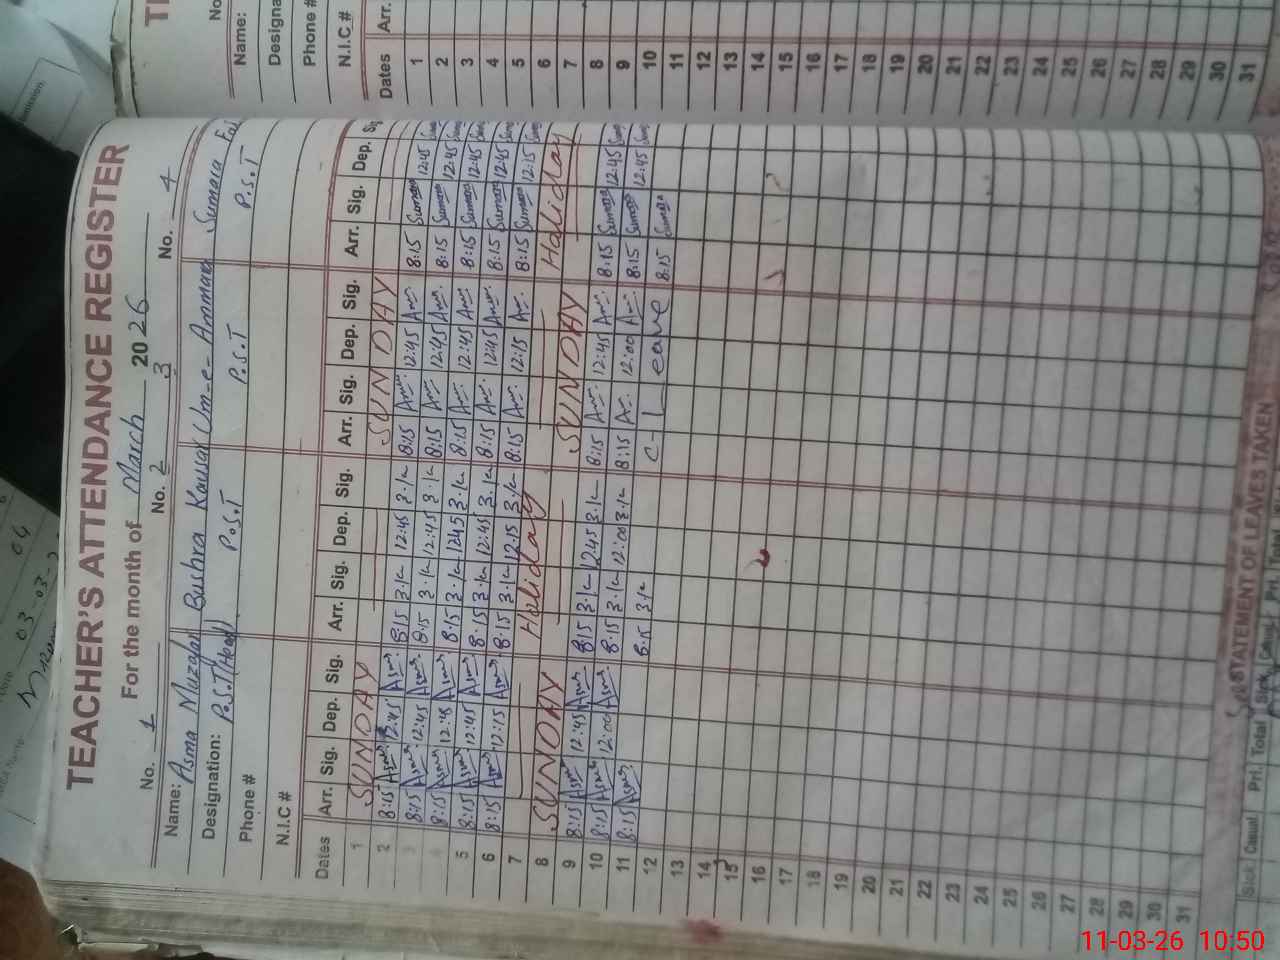 TEACHER'S ATTENDANCE REGISTER
For the month of March 2026
No. 1 No. 2 3 No. 4
Name: Asma Muzafar Bushra Kausar Um-e-Ammara Sumara
Designation: P.S.T(Head) P.S.T P.S.T P.S.T
Phone #
N.I.C #
Dates Arr. Sig. Dep. Sig. Arr. Sig. Dep. Sig. Arr. Sig. Dep. Sig. Arr. Sig. Dep.
1 SUNDAY SUNDAY
2 8:15 Asma 12:45 Asma 8:15 3.k 12:45 3.k 8:15 Am. 12:45 Am. 8:15 Sumara 12:45
3 8:15 Asma 12:45 Asma 8:15 3.k 12:45 3.k 8:15 Am. 12:45 Am. 8:15 Sumara 12:45
4 8:15 Asma 12:45 Asma 8:15 3.k 1245 3.k 8:15 Am. 12:45 Am. 8:15 Sumara 12:45
5 8:15 Asma 12:45 Asma 8:15 3.k 12:45 3.k 8:15 Am. 12:45 Am. 8:15 Sumara 12:45
6 8:15 Asma 12:15 Asma 8:15 3.k 12:15 3.k 8:15 Am. 12:15 Am. 8:15 Sumara 12:15
7 Haliday Haliday
8 SUNDAY SUNDAY
9 8:15 Asma 12:45 Asma 8:15 3.k 12:45 3.k 8:15 Am. 12:45 Am. 8:15 Sumara 12:45
10 8:15 Asma 12:00 Asma 8:15 3.k 12:00 3.k 8:15 Am. 12:00 Am. 8:15 Sumara 12:45
11 8:15 Asma 8:15 3.k C-Leave 8:15 Sumara
12
13
14
15
16
17
18
19
20
21
22
23
24
25
26
27
28
29
30
31
STATEMENT OF LEAVES TAKEN
Sick Casual Pri. Total Sick Casual Pri. Total
Name:
Designa
Phone #
N.I.C #
Dates Arr.
1
2
3
4
5
6
7
8
9
10
11
12
13
14
15
16
17
18
19
20
21
22
23
24
25
26
27
28
29
30
31
11-03-26 10:50